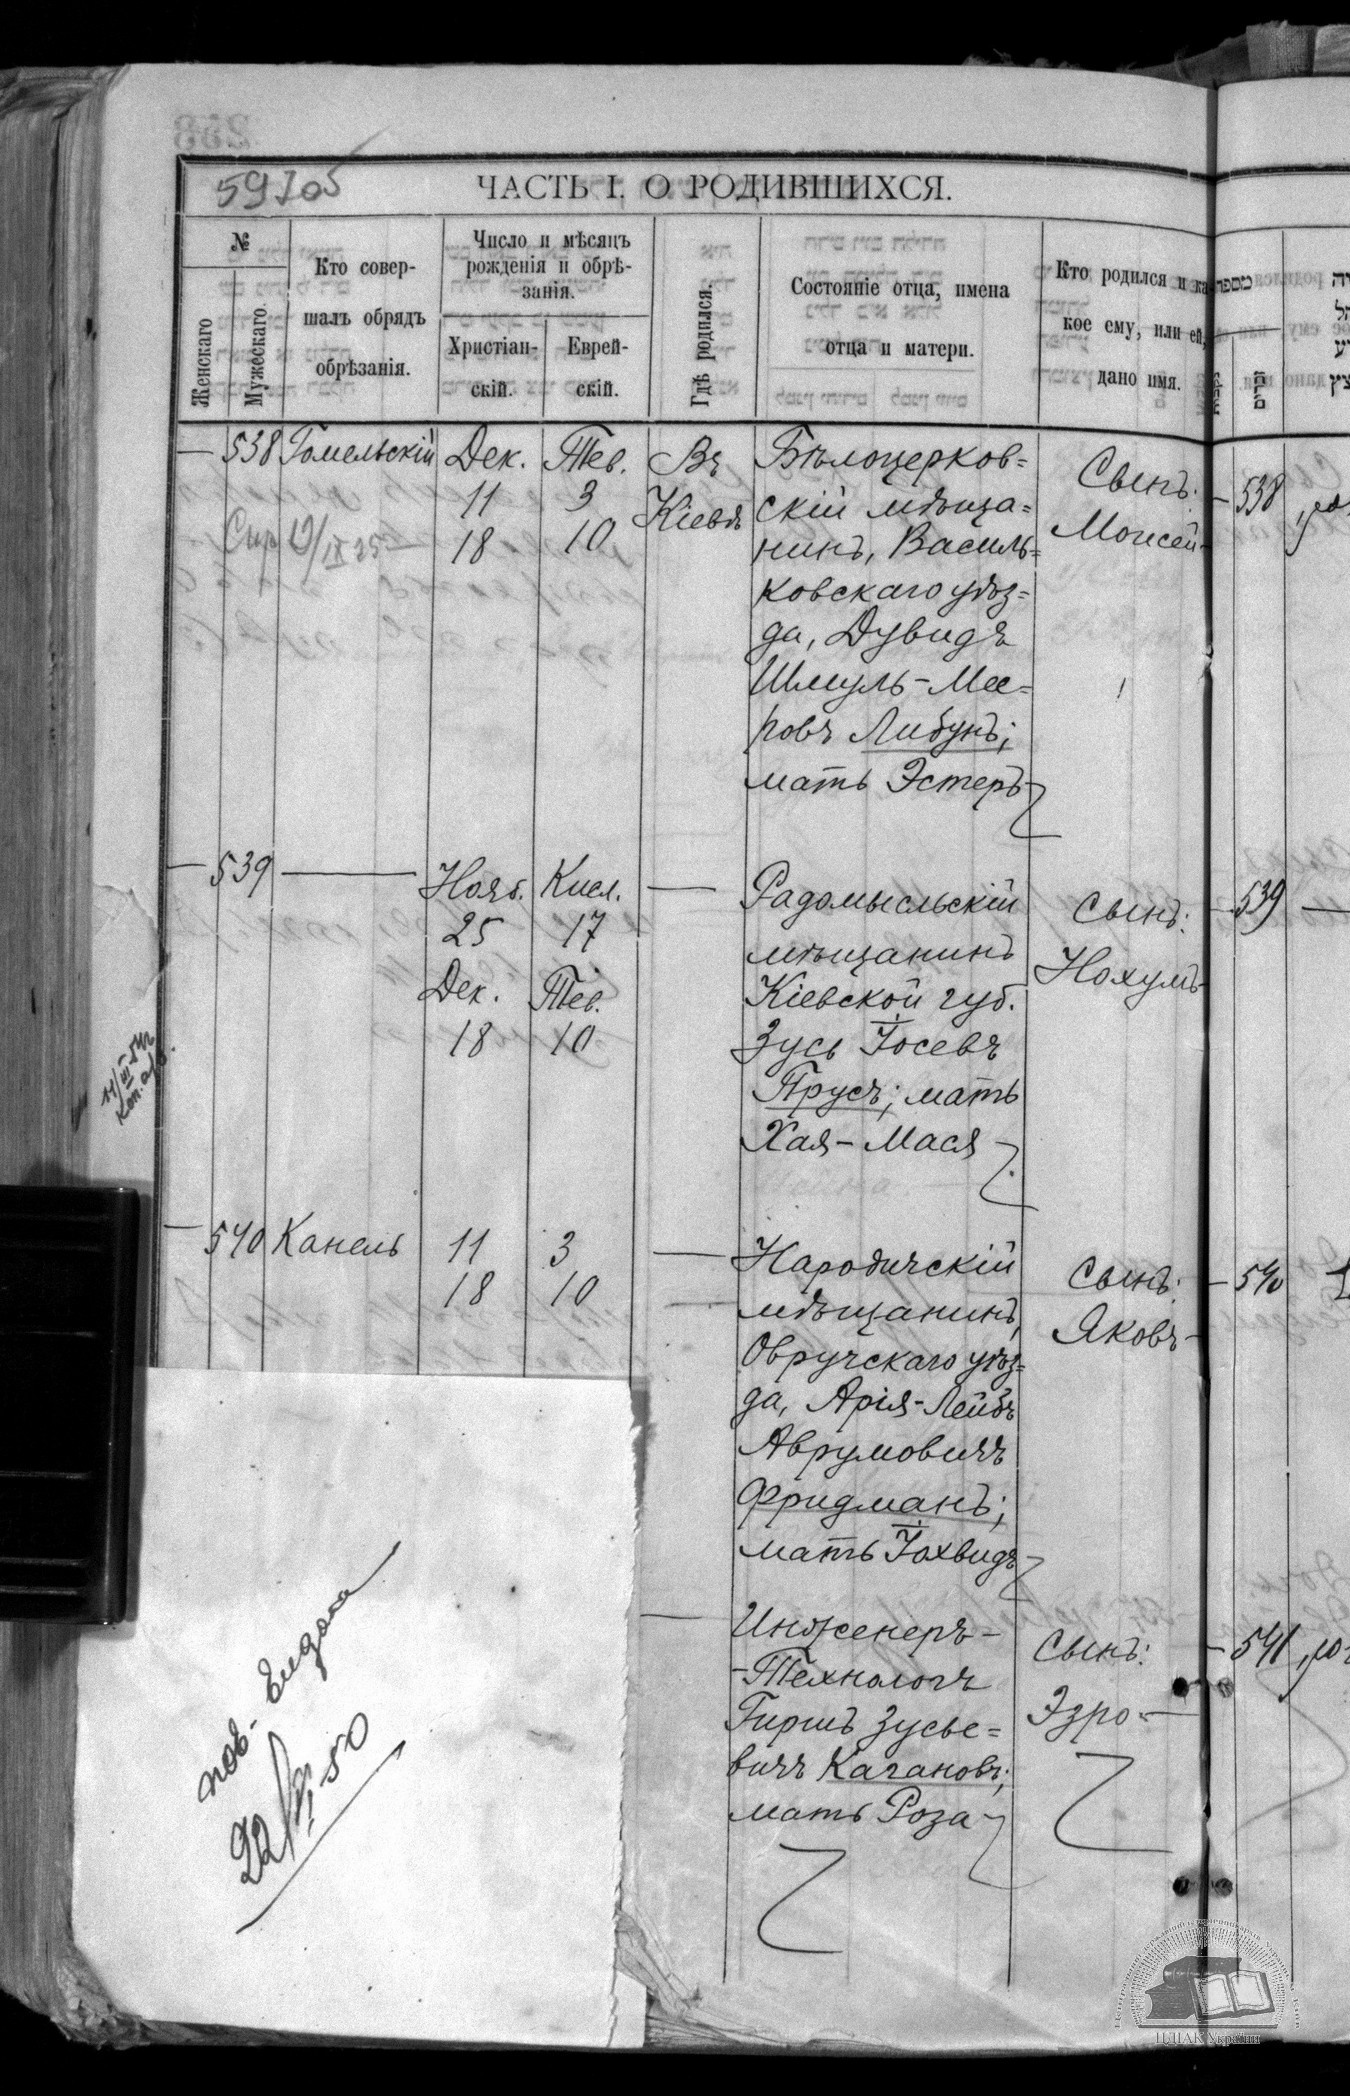 59705
ЧАСТЬ I. О РОДИВШИХСЯ.
№
Женскаго
Мужескаго.
Кто совер-
шалъ обрядъ
обрѣзанія.
Число и мѣсяцъ
рожденія и обрѣ-
занія.
Христіан-
скій.
Еврей-
скій.
Гдѣ родился.
Состояніе отца, имена
отца и матери.
Кто родился и ка-
кое ему, или ей,
дано имя.
מספר
נקבות
זכרים
— 538 Гомельскій Дек. Тев. Въ
11 3 Кіевѣ
18 10
Бѣлоцерков=
скій мѣща=
нинъ, Василь=
ковскаго уѣз=
да, Дувидъ
Шмуль-Мее=
ровъ Либунъ;
мать Эстеръ
Сынъ:
Моисей
— 538
— 539 — Нояб. Кисл. —
25 17
Дек. Тев.
18 10
Радомысльскій
мѣщанинъ
Кіевской губ.
Зусь Іосевъ
Прусъ; мать
Хая-Мася
Сынъ:
Нохумъ
— 539 —
11/III-54г
коп. а/о.
— 540 Канель 11 3 —
18 10
Народичскій
мѣщанинъ,
Овручскаго уѣз=
да, Арія-Лейбъ
Аврумовичъ
Фридманъ;
мать Іохвидъ
Сынъ:
Яковъ
— 540
— Инженеръ-
-Технологъ
Гиршъ Зусье=
вичъ Кагановъ;
мать Роза
Сынъ:
Эзро
— 541
22/VI-50
ЦДІАК України